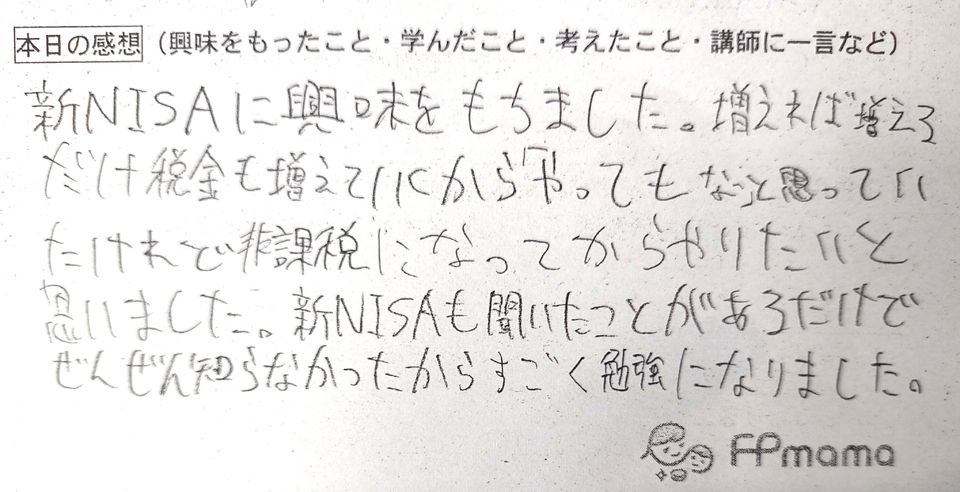 本日の感想（興味をもったこと・学んだこと・考えたこと・講師に一言など）
新NISAに興味をもちました。増えれば増えろ
だけ税金も増えていくから「やってもな」と思ってい
たけれど非課税になってからやりたいと
思いました。新NISAも聞いたことがあるだけで
ぜんぜん知らなかったからすごく勉強になりました。
FPmama